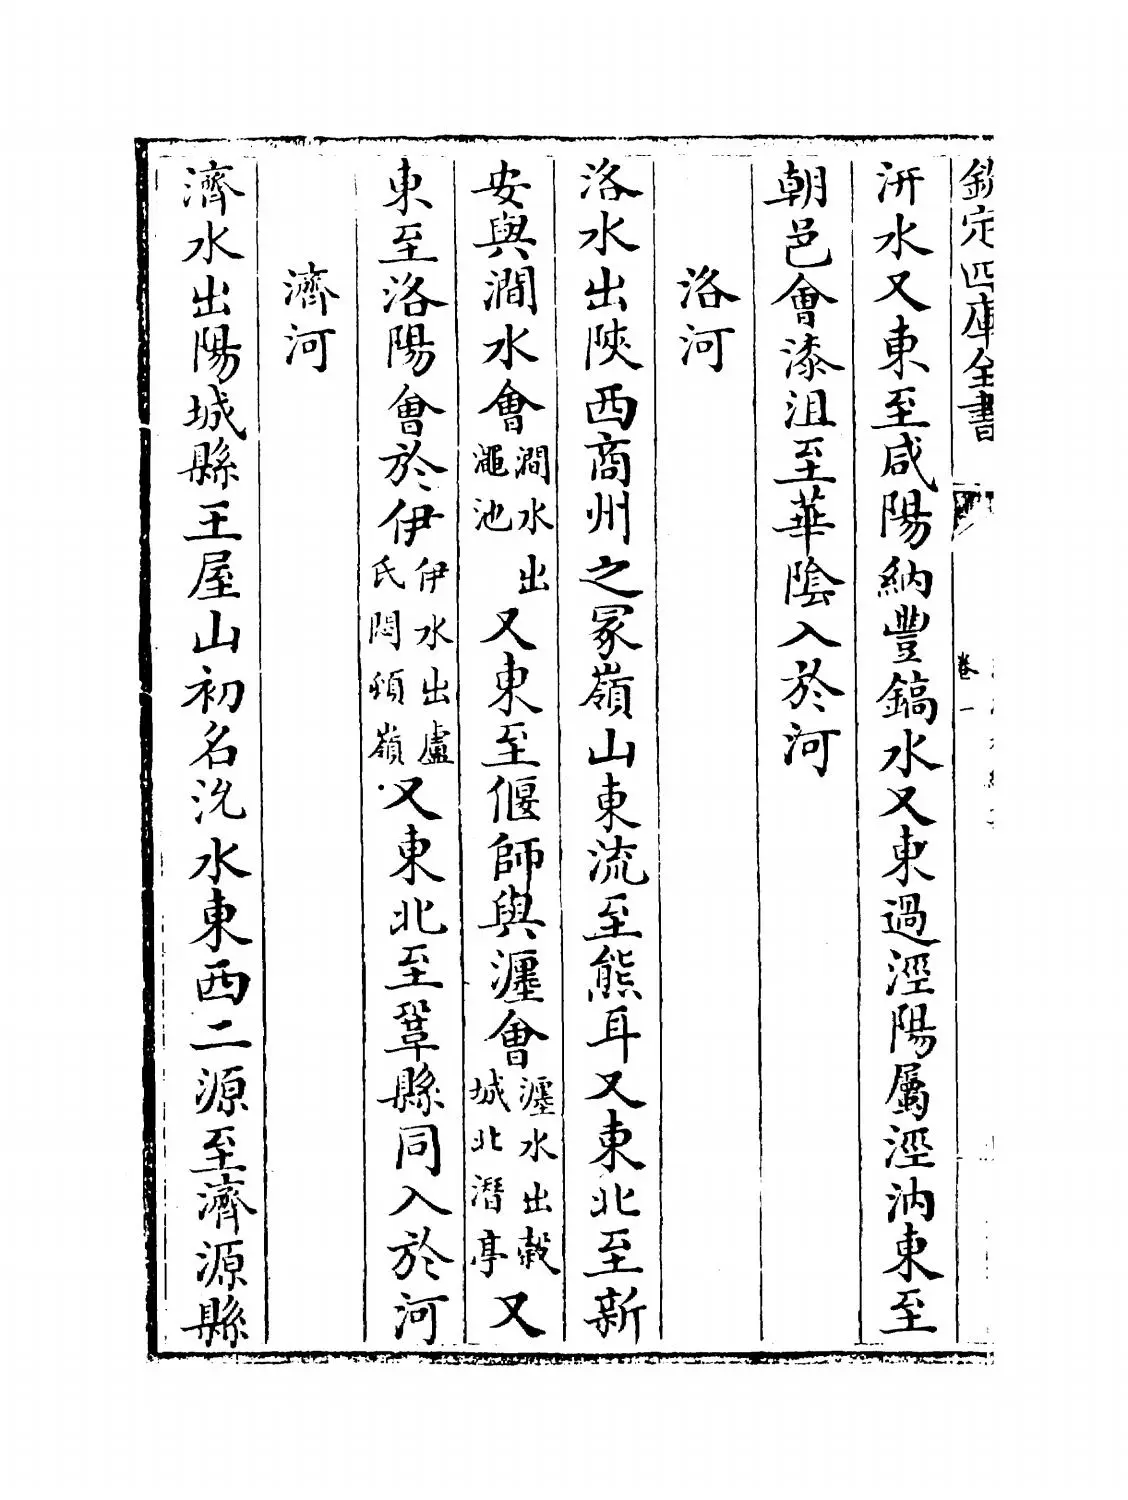 欽定四庫全書
卷一
汧水又東至咸陽納豐鎬水又東過涇陽屬涇汭東至
朝邑會漆沮至華陰入於河
洛河
洛水出陝西商州之冢嶺山東流至熊耳又東北至新
安與澗水會澗水出澠池又東至偃師與瀍會瀍水出穀城北潛亭又
東至洛陽會於伊伊水出盧氏悶頓嶺又東北至鞏縣同入於河
濟河
濟水出陽城縣王屋山初名沇水東西二源至濟源縣